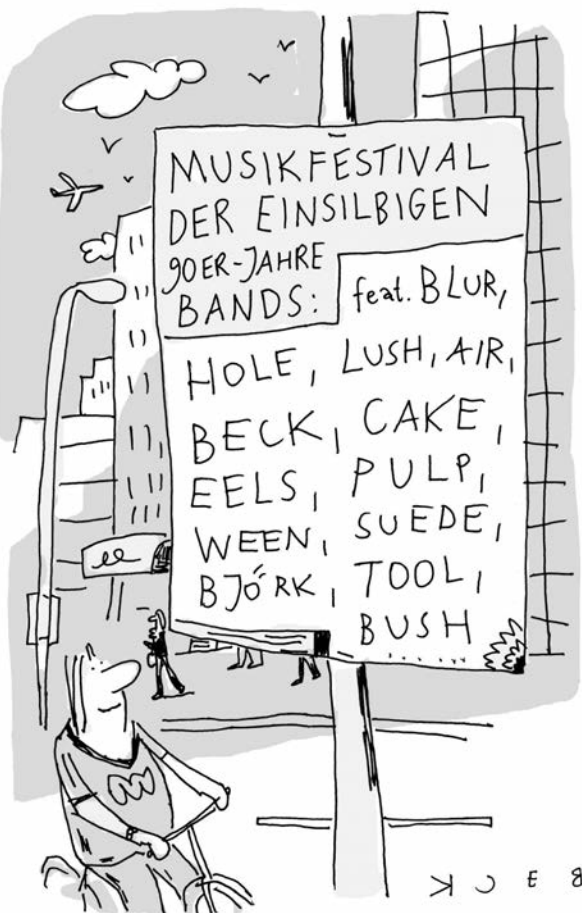 MUSIKFESTIVAL
DER EINSILBIGEN
90ER-JAHRE
BANDS:
feat. BLUR,
HOLE, LUSH, AIR,
BECK, CAKE,
EELS, PULP,
WEEN, SUEDE,
BJÖRK, TOOL,
BUSH
BECK